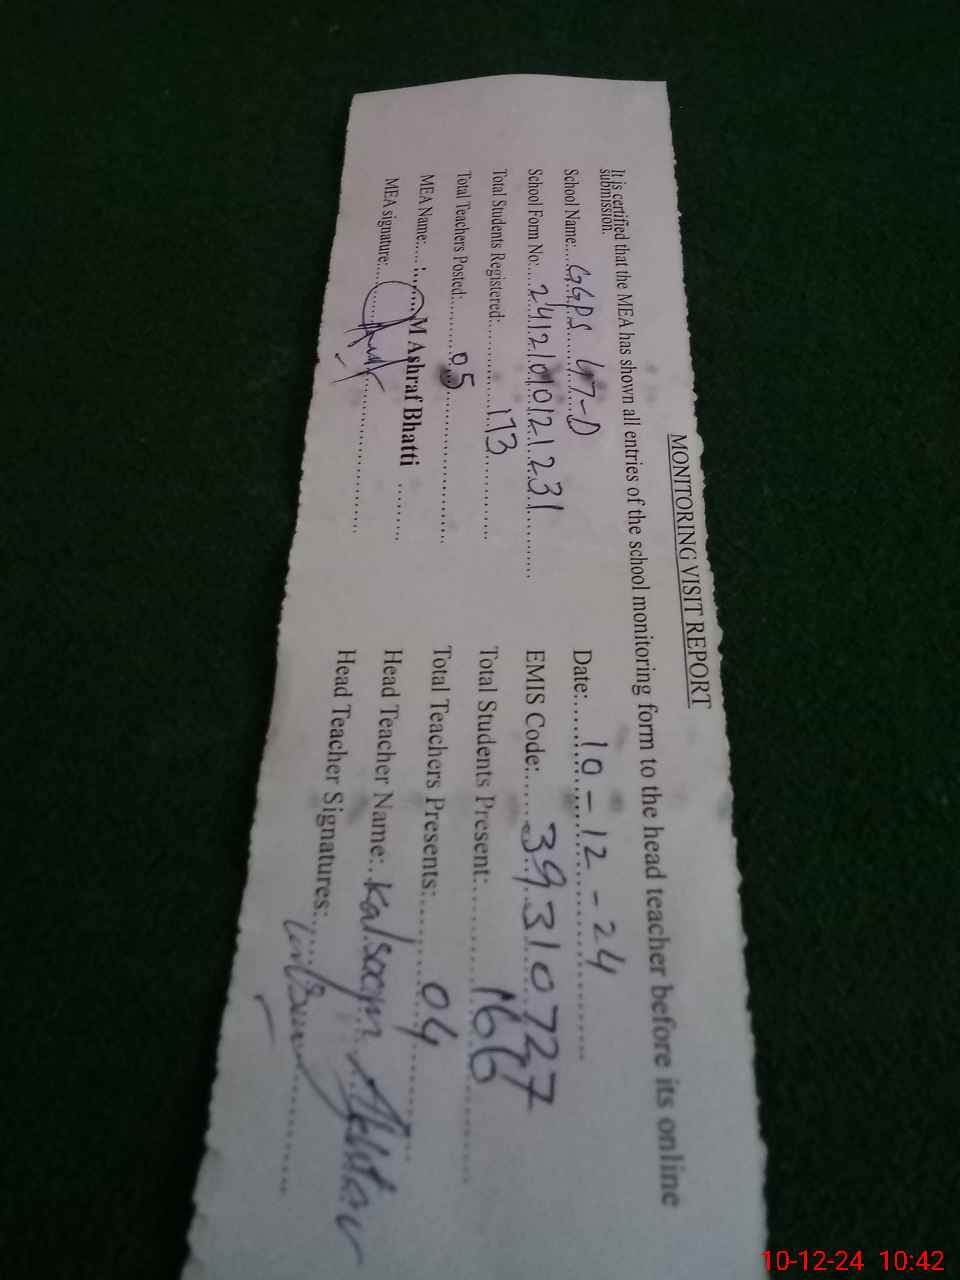 MONITORING VISIT REPORT
It is certified that the MEA has shown all entries of the school monitoring form to the head teacher before its online
submission.
School Name:....GGPS 47-D Date:.....10-12-24
School Form No:...2412101012123 1 EMIS Code:.....39310727
Total Students Registered:.....173 Total Students Present:.....166
Total Teachers Posted:.....05 Total Teachers Presents:.....04
MEA Name:.....M Ashraf Bhatti Head Teacher Name:..Kalsoom Akhtar
MEA signature:..... Head Teacher Signatures:.....
10-12-24 10:42